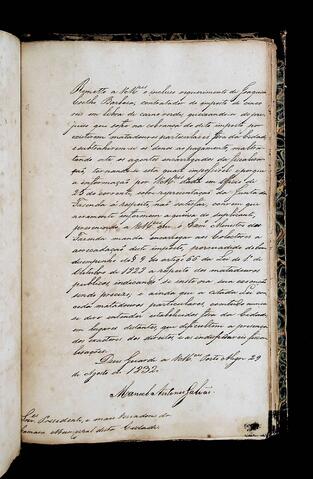 Remetto a VVMces o incluso requerimento de Joaquim
Coelho Barboza, contratador do imposto de cinco
reis em libra de carne verde, queixando-se do pre-
juizo que sofre na cobrança do dito imposto por
existirem matadouros particulares fora da Cidade
e subtrahirem-se os donos ao pagamento, maltra-
tando até os agentes encarregados da fiscalisação
tornando-se esta quasi impossivel: e porque
a informação por VVMces dada em officio de
25 do corrente, sobre representação da Junta da
Fazenda a respeito, não satisfaz, convem que
novamente informem a queixa do suplicante,
prevenindo a VVMces que o Exmo Ministro da
Fazenda manda encarregar aos Collectores a
arrecadação deste imposto, persuadido do bom
desempenho do § 9 do artigo 66 da Lei do 1º de
Outubro de 1828 a respeito dos matadouros
publicos, indicando se
sendo precisa; e ainda que a citada Lei con-
ceda matadouros particulares, comtudo nunca
se deve entender estabelecidos fora da Cidade
em lugares distantes, que dificultem a presença
dos exactores dos direitos e as indispensaveis fisca-
lisações.
Deus Guarde a VVMces Porto Alegre 29
de Agosto de 1832.
Manoel Antonio Galvão
Snres Presidente, e mais Vereadores da
Camara Municipal desta Cidade